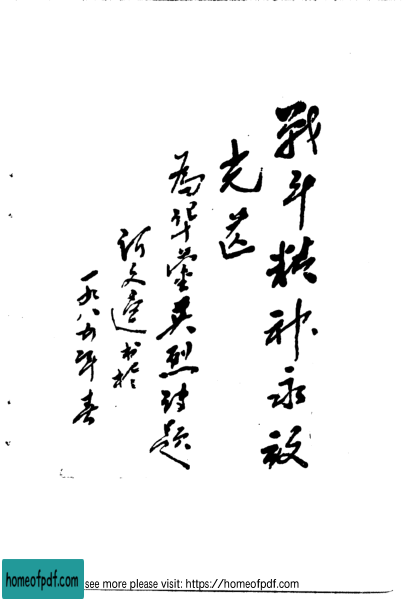 战斗精神永放
光芒
为华蓥英烈诗题
文达书于
一九八五年春
homeofpdf.com
see more please visit: https://homeofpdf.com